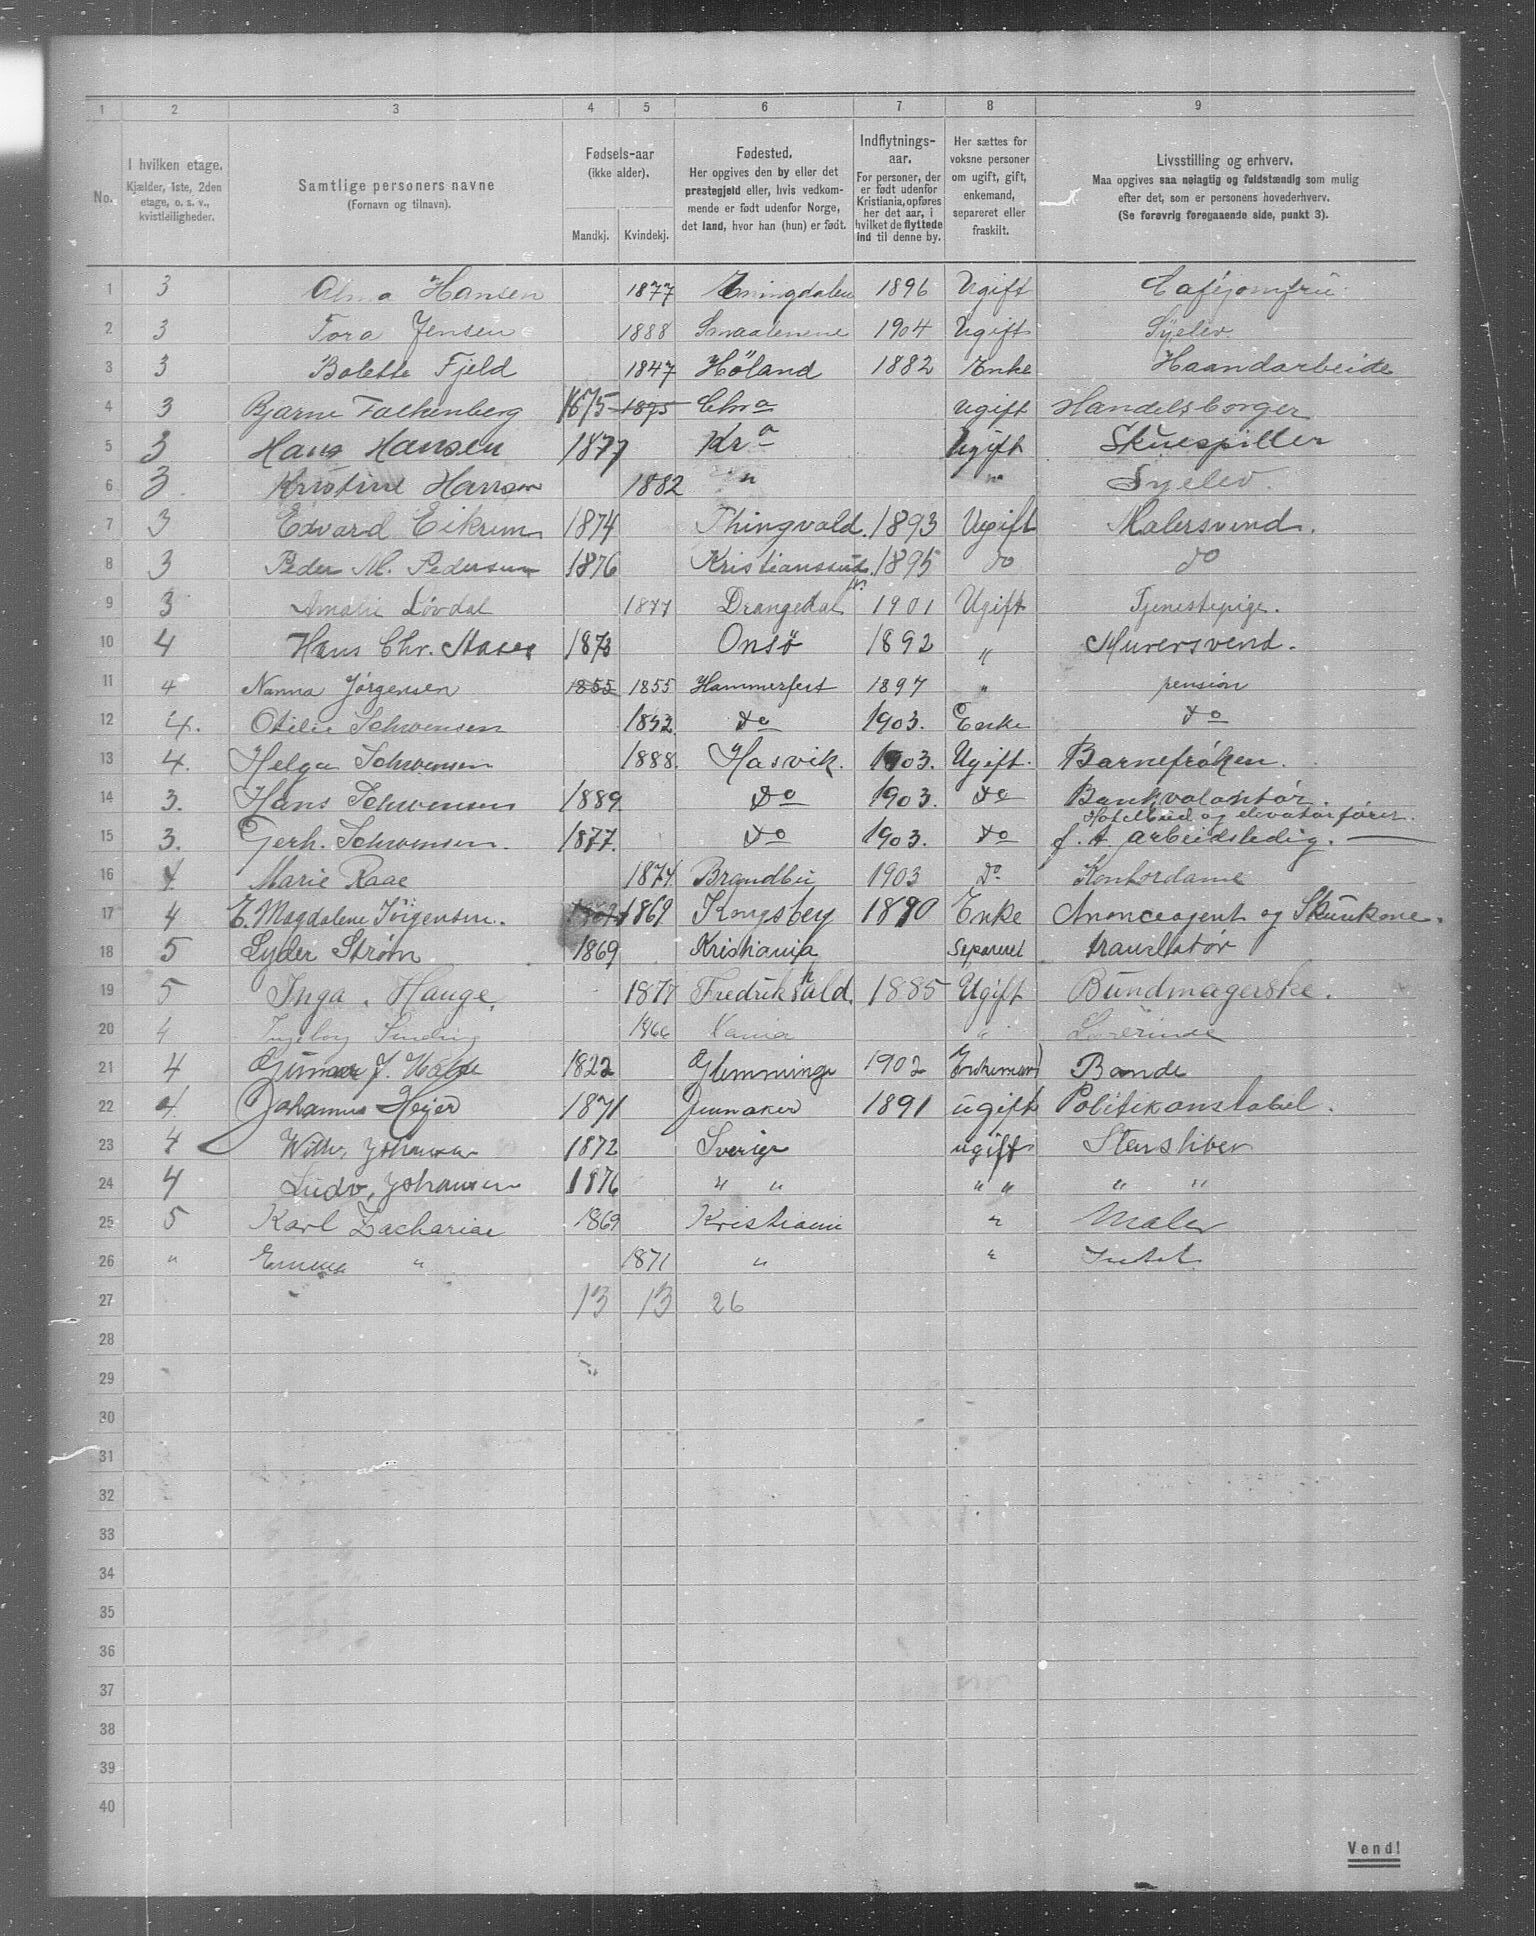 1 2 3 4 5 6 7 8 9
No.
I hvilken etage.
Kjælder, 1ste, 2den
etage, o. s. v.,
kvistleiligheder.
Samtlige personers navne
(Fornavn og tilnavn).
Fødsels-aar
(ikke alder).
Mandkj. Kvindekj.
Fødested.
Her opgives den by eller det
prestegjeld eller, hvis vedkom-
mende er født udenfor Norge,
det land, hvor han (hun) er født.
Indflytnings-
aar.
For personer, der
er født udenfor
Kristiania, opføres
her det aar, i
hvilket de flyttede
ind til denne by.
Her sættes for
voksne personer
om ugift, gift,
enkemand,
separeret eller
fraskilt.
Livsstilling og erhverv.
Maa opgives saa nøiagtig og fuldstændig som mulig
efter det, som er personens hovederhverv.
(Se forøvrig foregaaende side, punkt 3).
1 3 Alma Hansen 1877 1896 Ugift Caféjomfru
2 3 Tora Jensen 1888 Smaalenene 1904 Ugift Syelev
3 3 Bolette Fjeld 1847 Høland 1882 Enke Haandarbeide
4 3 Bjarne Falkenberg 1875 1875 Chra Ugift Handelsborger
5 3 Hans Hansen 1877 Kra Ugift Skuespiller
6 3 Kristine Hansen 1882 " " Syelev.
7 3 Edvard Eikrem 1874 Thingvold. 1893 Ugift Malersvend.
8 3 Peder M. Pedersen 1876 Kristianssund N. 1895 do do
9 3 Amalie Løvdal 1877 Drangedal 1901 Ugift Tjenestepige.
10 4 Hans Chr. 1873 Onsø 1892 " Murersvend.
11 4 Nanna Jørgensen 1855 1855 Hammerfest 1897 " pension
12 4. Otilie Schwensen 1852 do 1903. Enke do
13 4. Helga Schwensen 1888. Hasvik. 1903. Ugift. Barnefrøken.
14 3. Hans Schwensen 1889 do 1903. do Bankvolontør.
Hotelbud og elevatorfører.
15 3. Gerh. Schwensen. 1877. do 1903. do f. t. arbeidsledig.
16 4 Marie Raae 1874. Brandbu 1903 Do Kontordame
17 4 E. Magdalene Jörgensen. 1869 1869 Kongsberg 1890 Enke Anonceagent og
18 5 Lyder Strøm 1869 Kristiania Separeret translatør
19 5 Inga Hauge, 1877 Fredrikshald. 1885 Ugift Bundmagerske.
20 4 Ingeborg Sinding 1866 " Lærerinde
21 4 Gunnar J. 1822 Glemminge 1902 Enkemand Bonde
22 4 Johannes Heyer 1871 Jevnaker 1891 ugift Politikonstabel.
23 4 Wilh. Johansen 1872 Sverige ugift Stensliber
24 4 Ludv. Johansen 1876 " " " " " "
25 5 Karl Zachariae 1869 Kristiania " Maler
26 " Emma " 1871 " " Intet
27 13 13 26
28
29
30
31
32
33
34
35
36
37
38
39
40
Vend!